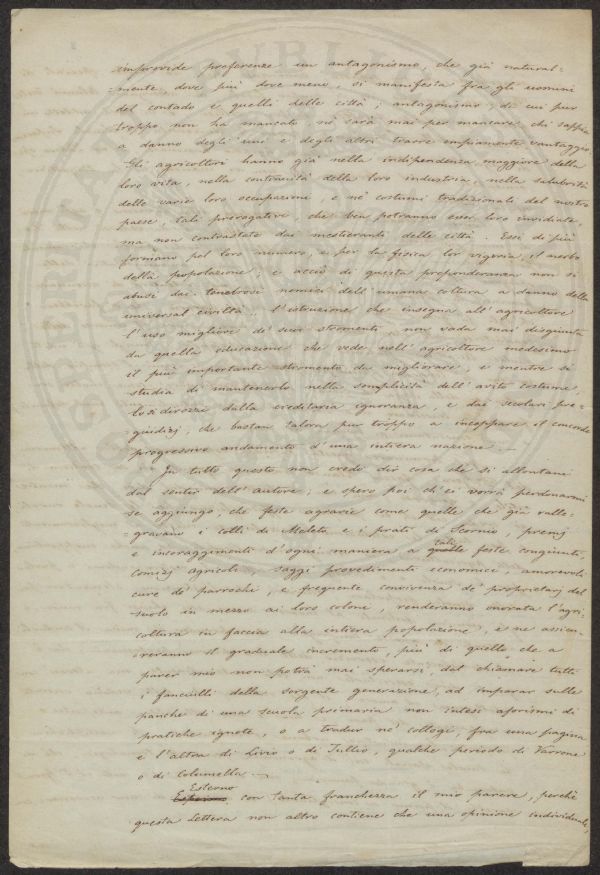 improvvide preferenze un antagonismo, che già natural-
-mente, dove più dove meno, si manifesta fra gli uomini
del contado e quelli delle città; antagonismo, di cui pur
troppo non ha mancato, nè sarà mai per mancare chi sappia
a danno degli uni e degli altri trarre empiamente vantaggio.
Gli agricoltori hanno già nella indipendenza maggiore della
loro vita, nella continuità della loro industria, nella salubrità
delle varie loro occupazioni, e ne' costumi tradizionali del nostro
paese, tali prerogative, che ben potranno esser loro invidiate,
ma non contrastate dai mestieranti delle città. Essi di più
formano pel loro numero, e per la fisica lor vigoria, il nerbo
della popolazione; e acciò di questa preponderanza non si
abusi da' tenebrosi nemici dell'umana coltura a danno della
universal civiltà, l'istruzione che insegna all'agricoltore
l'uso migliore de' suoi stromenti, non vada mai disgiunta
da quella educazione che vede nell'agricoltore medesimo
il più importante stromento da migliorare, e mentre si
studia di mantenerlo nella semplicità dell'avito costume,
lo si dirozzi dalla ereditaria ignoranza, e dai secolari pre-
giudizj, che bastan talora pur troppo a inceppare il concorde
progressivo andamento d'una intiera nazione. —
In tutto questo non credo dir cosa che si allontani
dal sentir dell'autore; e spero poi ch'ei vorrà perdonarmi
se aggiungo, che feste agrarie come quelle che già ralle-
-gravano i colli di Meleto e i prati di Scornio, premj
e incoraggimenti d'ogni maniera a quelle tali feste congiunti,
comizj agricoli, saggi provedimenti economici, amorevoli
cure de' parrochi, e frequente convivenza de' proprietarj del
suolo in mezzo ai loro coloni, renderanno onorata l'agri-
coltura in faccia alla intiera popolazione, e ne assicu-
reranno il graduale incremento, più di quello che a
parer mio non potrà mai sperarsi, dal chiamare tutti
i fanciulli della sorgente generazione, ad imparar sulle
panche di una scuola primaria non intesi aforismi di
pratiche ignote, o a tradur ne' collegi, fra una pagina
e l'altra di Livio o di Tullio, qualche periodo di Varrone
o di Columella. —
Esprimo Esterno con tanta franchezza il mio parere, perchè
questa Lettera non altro contiene che una opinione individuale,